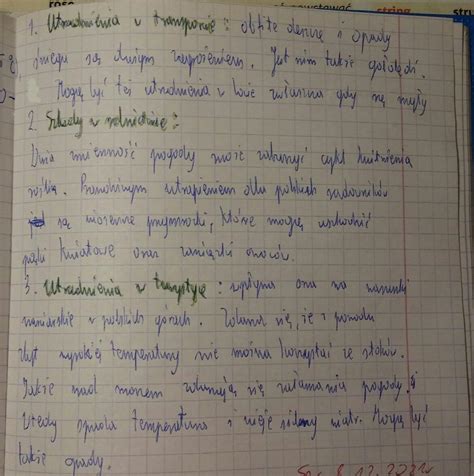 rose
string
stru
1. Utrudnienia w transporcie: obfite deszcze i opady
śniegu są dużym zagrożeniem. Jest nim także gołoledź.
Mogą być też utrudnienia w locie zwłaszcza gdy są mgły
2. Szkody w rolnictwie:
Duża zmienność pogody może zaburzyć cykl kwitnienia
roślin. Prawdziwym utrapieniem dla polskich sadowników
są wiosenne przymrozki, które mogą uszkodzić
pąki kwiatowe oraz zawiązki owoców.
3. Utrudnienia w turystyce: wpływa ona na warunki
narciarskie w polskich górach. Zdarza się, że z powodu
zbyt wysokiej temperatury nie można korzystać ze stoków.
Także nad morzem zdarzają się załamania pogody.
Wtedy spada temperatura i wieje silny wiatr. Mogą być
także opady.
8.12.202